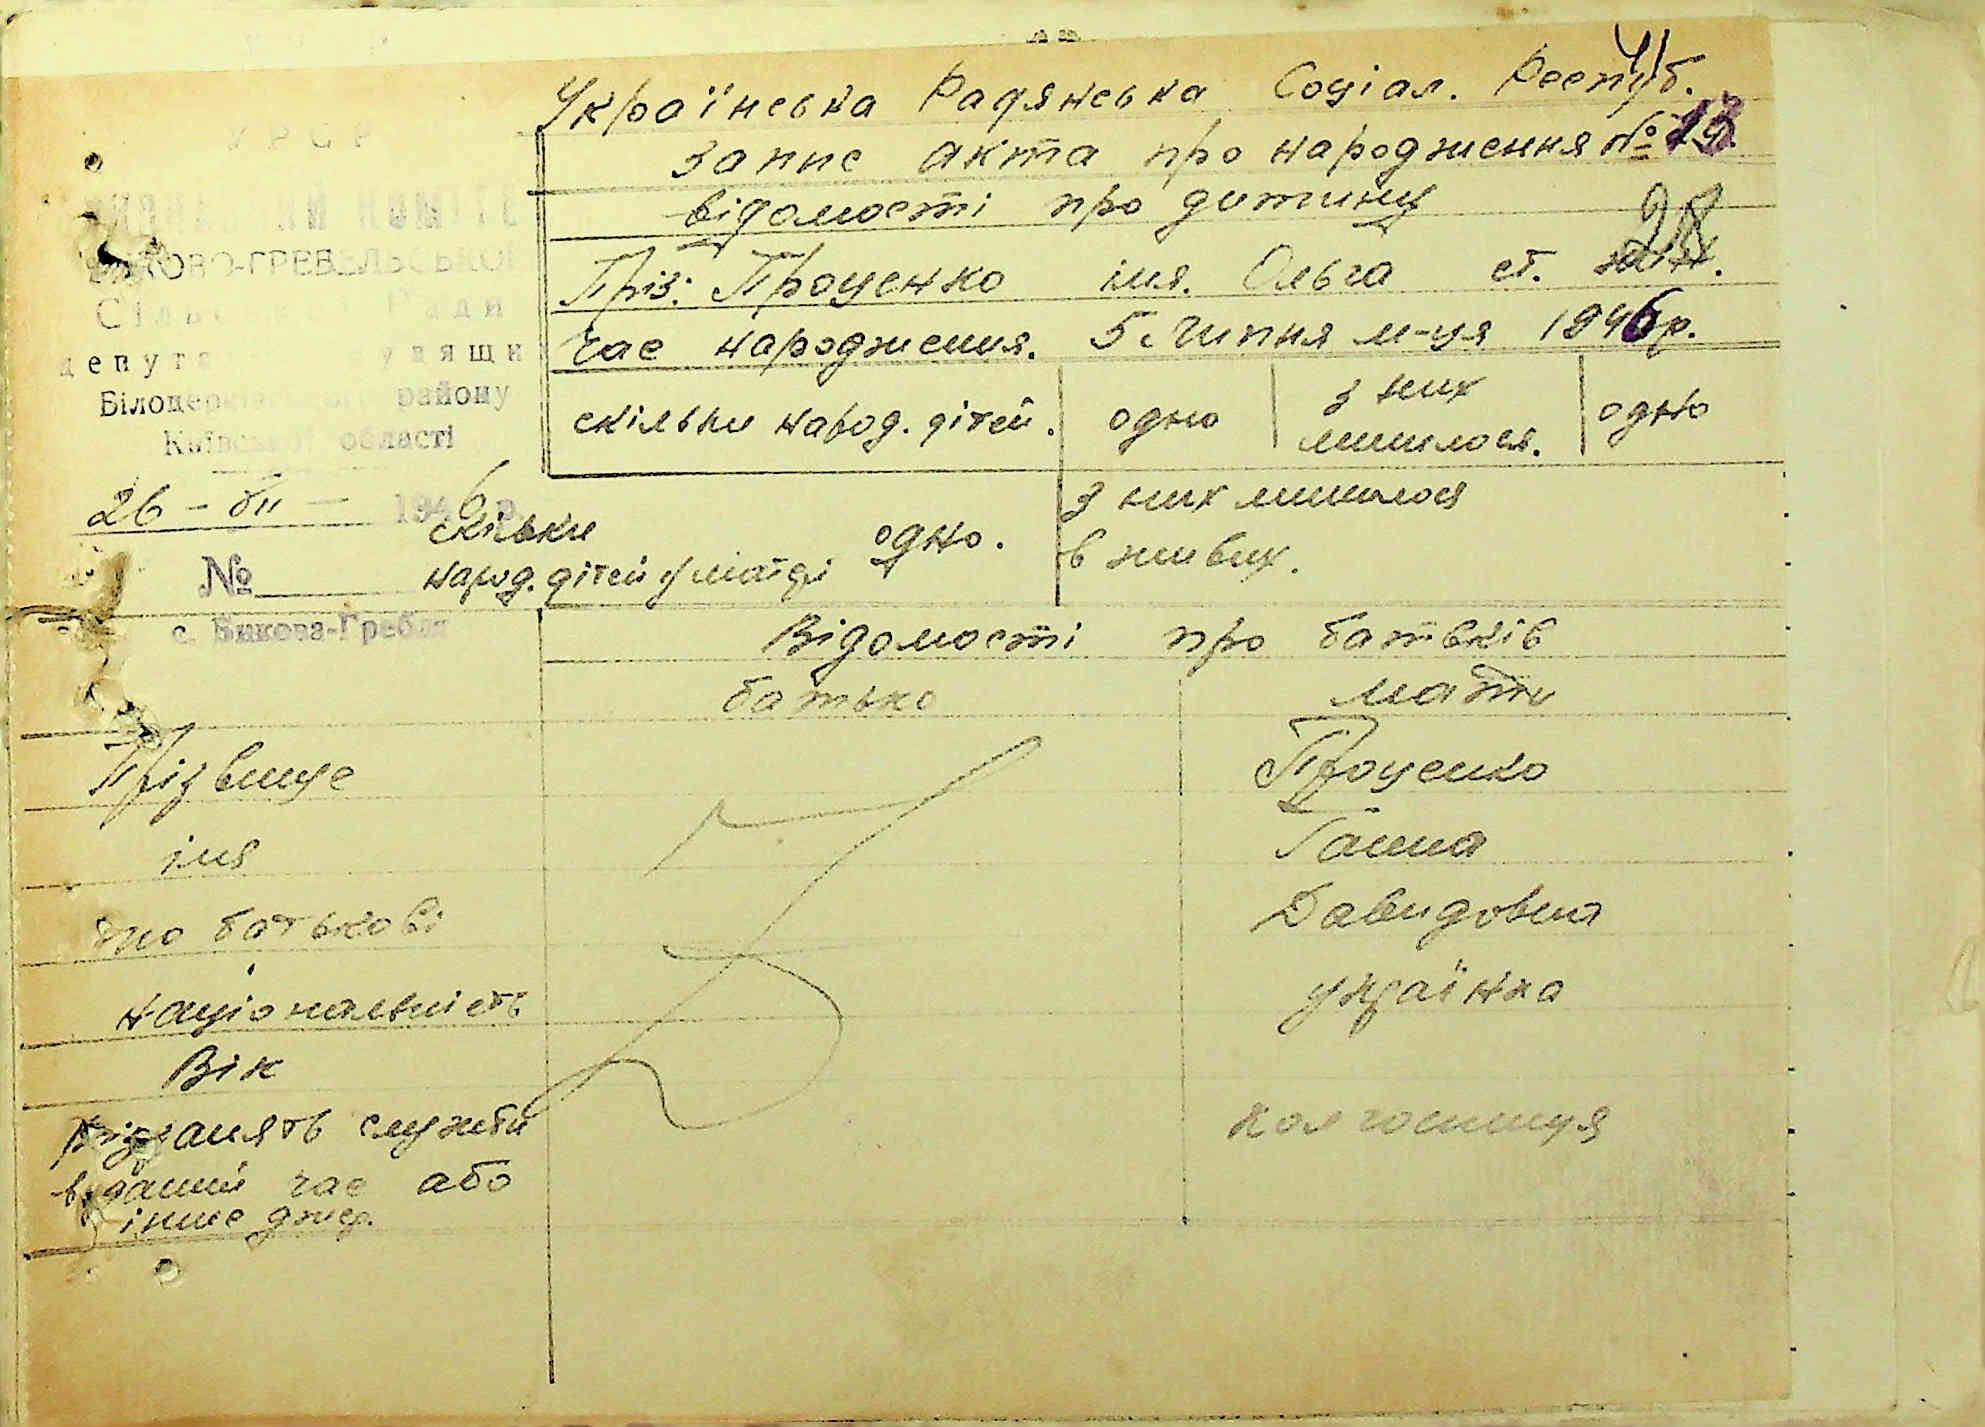 41
Українська Радянська Соціал. Респуб.
запис акта про народження №
відомості про дитину
28
Пріз: Проценко імя. Ольга ст.
час народження. 5 Липня м-ця 1946р.
скільки народ. дітей. одно з них жишлося. одно
УРСР
КОВО-ГРЕБЕЛЬСЬКОЇ
Сільської Ради
депута удящи
Білоцерківського району
Київської області
26 - VII - 1946 р.
скільки народ. дітей у матері одно. з них жишлося в живих.
№
с. Бикова-Гребля
Відомості про батьків
батько мати
Прізвище Проценко
імя Ганна
по батькові Давидовна
національність українка
Вік
занять служби колгоспниця
в даний час або
інше джер.